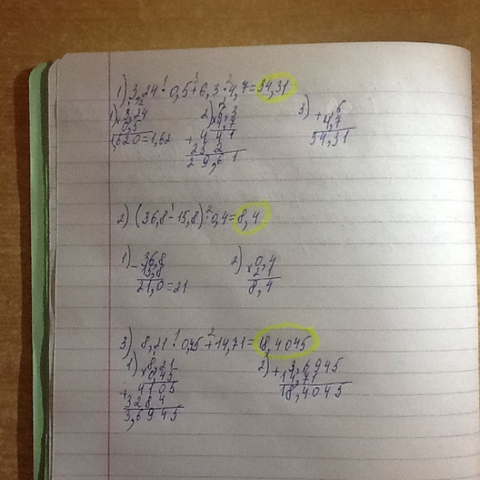 1) 3,24 · 0,5 + 6,3 · 4,7 = 34,31
1) 3,24
× 0,5
1,620 = 1,62
2) × 6,3
4,7
+ 441
252
29,61
3) +
4,7
2) (36,8 - 15,8) · 0,4 = 8,4
1) - 36,8
15,8
21,0 = 21
2) × 0,4
21
8,4
3) 8,21 · 0,45 + 14,71 = 18,4045
1) × 8,21
0,45
+ 4105
3284
3,6945
2) + 3,6945
14,71
18,4045